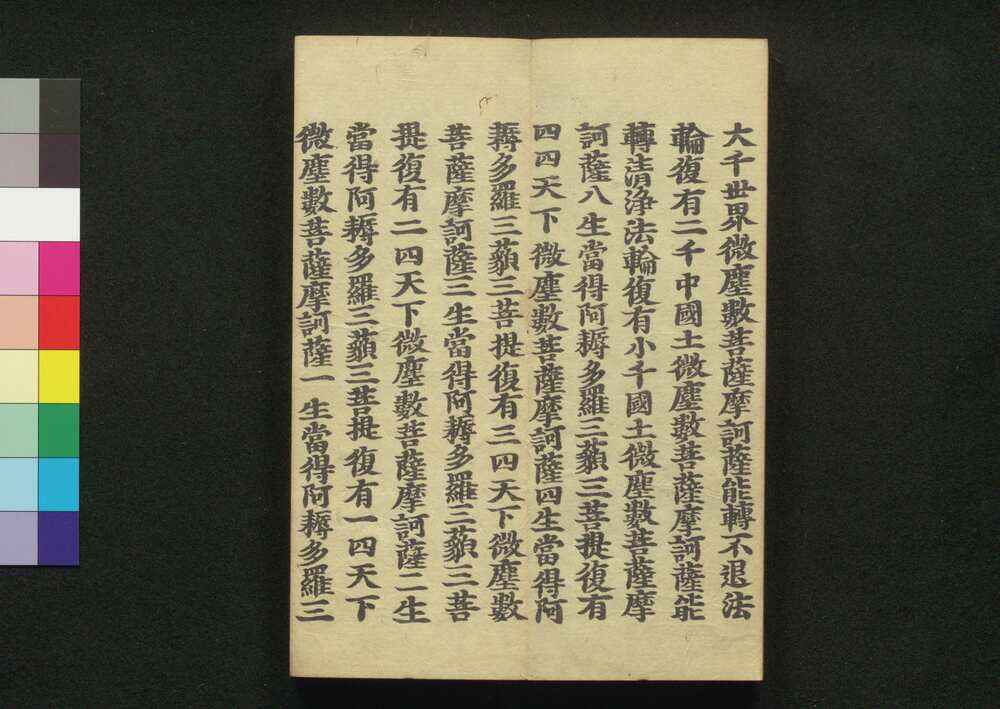 大千世界微塵數菩薩摩訶薩能轉不退法
輪復有二千中國土微塵數菩薩摩訶薩能
轉清淨法輪復有小千國土微塵數菩薩摩
訶薩八生當得阿耨多羅三藐三菩提復有
四四天下微塵數菩薩摩訶薩四生當得阿
耨多羅三藐三菩提復有三四天下微塵數
菩薩摩訶薩三生當得阿耨多羅三藐三菩
提復有二四天下微塵數菩薩摩訶薩二生
當得阿耨多羅三藐三菩提復有一四天下
微塵數菩薩摩訶薩一生當得阿耨多羅三